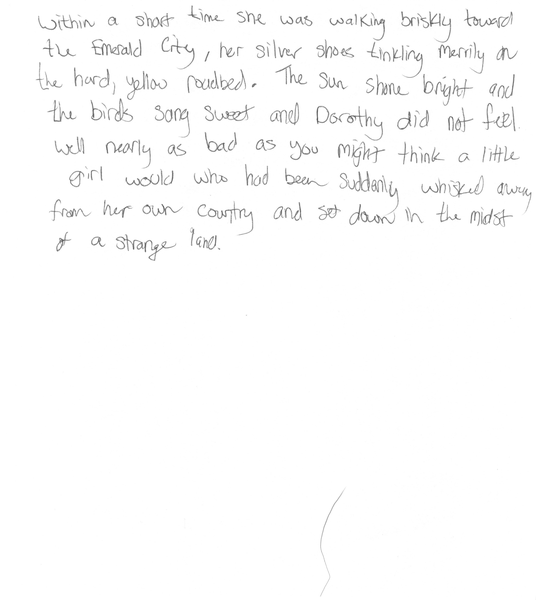 Within a short time she was walking briskly toward
the Emerald City, her silver shoes tinkling merrily on
the hard, yellow roadbed. The sun shone bright and
the birds sang sweet and Dorothy did not feel
well nearly as bad as you might think a little
girl would who had been suddenly whisked away
from her own country and set down in the midst
of a strange land.